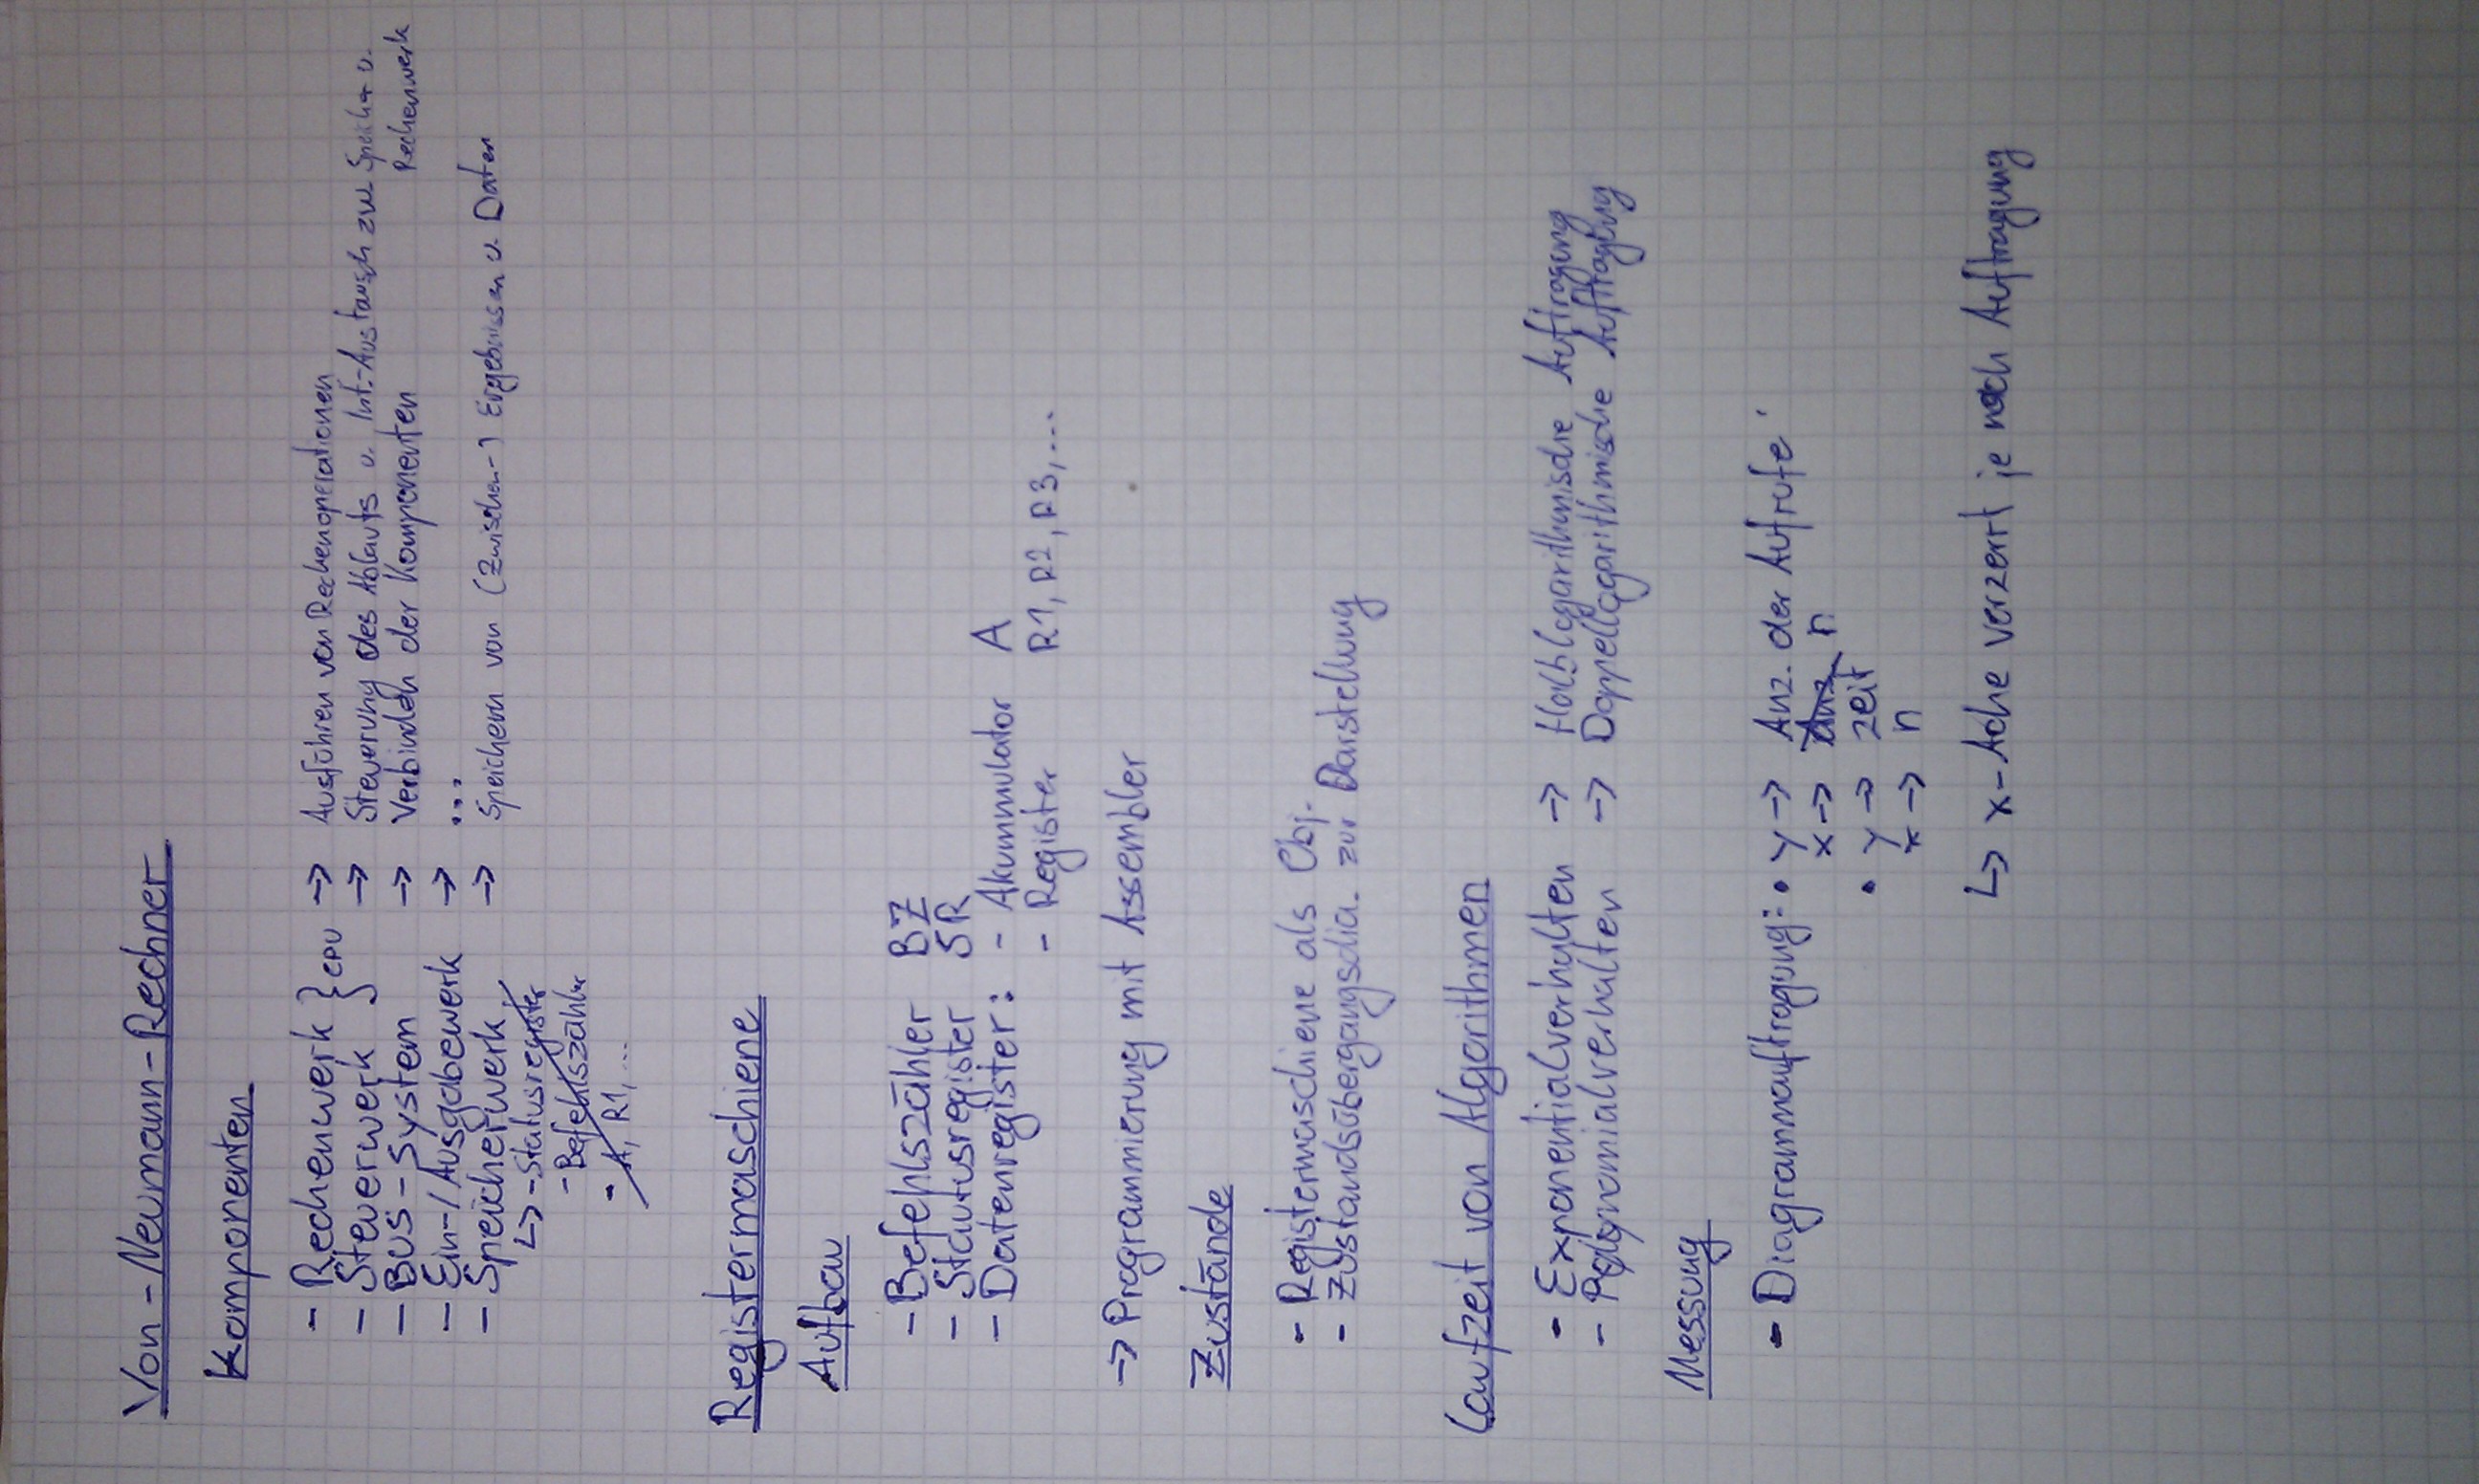 Von-Neumann-Rechner
Komponenten
- Rechenwerk } CPU → Ausführen von Rechenoperationen
- Steuerwerk → Steuerung des Ablaufs u. Inf.-Austausch zw Speicher u. Rechenwerk
- BUS-System → Verbinden der Komponenten
- Ein-/Ausgabewerk → ...
- Speicherwerk → Speichern von (Zwischen-) Ergebnissen u. Daten
↳ - Statusregister
- Befehlszähler
- A, R1, ...
Registermaschiene
Aufbau
- Befehlszähler BZ
- Stautusregister SR
- Datenregister: - Akummulator A
- Register R1, R2, R3, ...
→ Programmierung mit Assembler
Zustände
- Registermaschiene als Obj.
- Zustandsübergangsdia. zur Darstellung
Laufzeit von Algorithmen
- Exponentialverhalten → Halblogarithmische Auftragung
- Polynomialverhalten → Doppellogarithmische Auftragung
Messung
- Diagrammauftragung: • y → Anz. der Aufrufe
x → n
• y → zeit
x → n
↳ x-Achse verzerrt je nach Auftragung